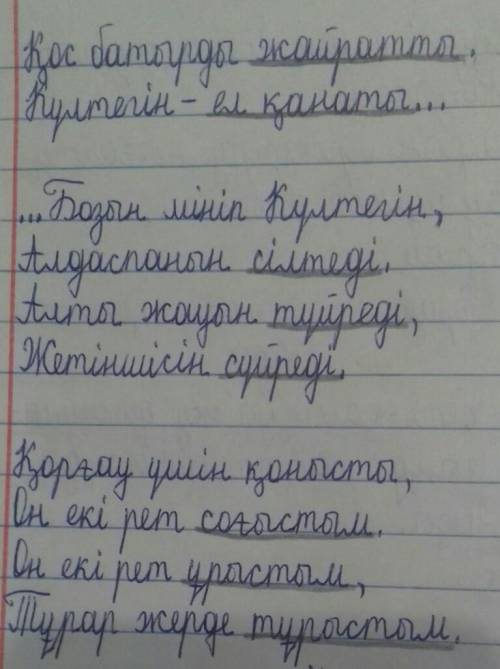 Қос батырды жайратты.
Күлтегін - ел қанаты...
...Бозын мініп Күлтегін,
Алдаспанын сілтеді.
Алты жауын түйреді,
Жетіншісін сүйреді.
Қорғау үшін қонысты,
Он екі рет соғыстым.
Он екі рет ұрыстым,
Тұрар жерде тұрыстым.